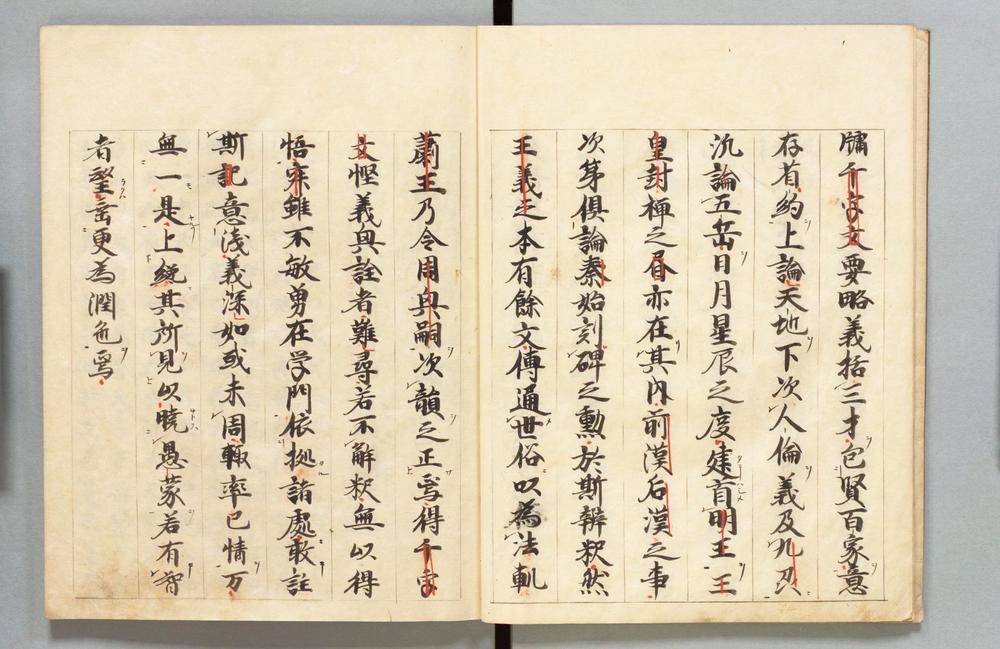 牗千字文要略義括三才包賢百家意
存有約上論天地下次人倫義及九
汎論五岳日月星辰之度建首明王王
皇封禅之昼亦在其内前漢后漢之事
次苐倶論秦始刻碑之勲於斯辨釈然
王義之本有餘文傳通世俗以為法軌
蕭王乃令周與嗣次韻之正焉得千字
文慳義與詮者難尋若不解釈無以得
悟宋雖不敏勇在学門依拠諸處敢註
斯記意浅義深如或未周輙率己情万
無一是上綂其所見以暁愚蒙若有智
者望岳更為潤色焉